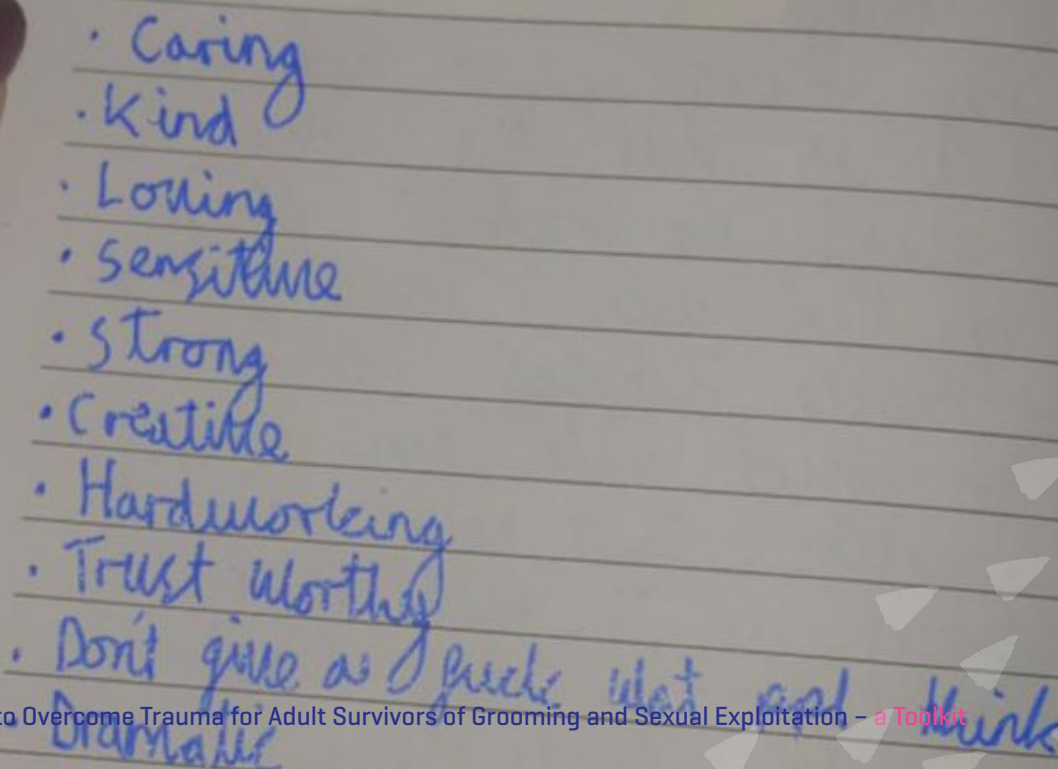 · Caring
· Kind
· Loving
· Sensitive
· Strong
· Creative
· Hardworking
· Trust worthy
· Don't give a fuck wat ppl think
to Overcome Trauma for Adult Survivors of Grooming and Sexual Exploitation – a Toolkit
· Dramatic